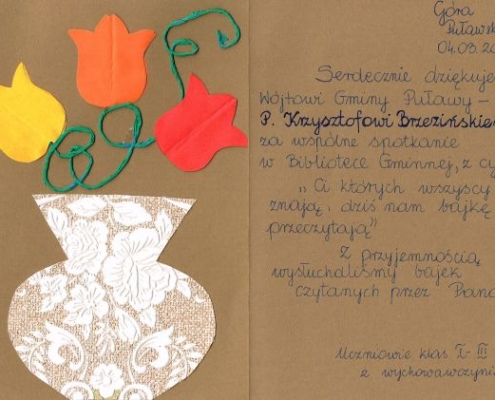 Góra
Puławsk
04.03.20
Serdecznie dziękuje
Wójtowi Gminy Puławy -
P. Krzysztofowi Brzezińskie
za wspólne spotkanie
w Bibliotece Gminnej, z cy
„Ci których wszyscy
znają, dziś nam bajkę
przeczytają"
Z przyjemnością
wysłuchaliśmy bajek
czytanych przez Pana
Uczniowie klas I-III
z wychowawczyni